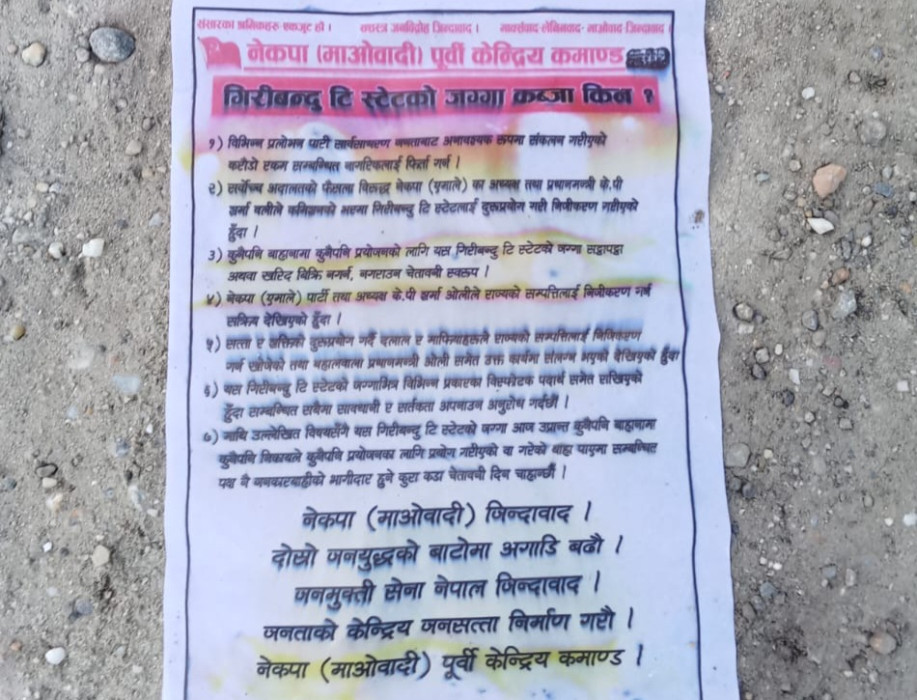 संसारका श्रमिकहरु एकजुट हौ । सशस्त्र जनविद्रोह जिन्दावाद । मार्क्सवाद-लेनिनवाद-माओवाद जिन्दावाद ।
नेकपा (माओवादी) पूर्वी केन्द्रिय कमाण्ड
गिरीबन्दु टि स्टेटको जग्गा कब्जा किन ?
१) विभिन्न प्रलोभन पार्टी सार्वसाधारण जनताबाट अनावश्यक रूपमा संकलन गरीएको
करोडौ रकम सम्बन्धित नागरिकलाई फिर्ता गर्न ।
२) सर्वोच्च अदालतको फैसला विरुद्ध नेकपा (एमाले) का अध्यक्ष तथा प्रधानमन्त्री के.पी
शर्मा वलीले कमिसनको भरमा गिरीबन्दु टि स्टेटलाई दुरूपयोग गरी निजीकरण गरीएको
हुँदा ।
३) कुनैपनि बाहानामा कुनैपनि प्रयोजनको लागि यस गिरीबन्दु टि स्टेटको जग्गा सट्टापट्टा
अथवा खरिद बिक्रि नगर्न, नगराउन चेतावनी स्वरुप ।
४) नेकपा (एमाले) पार्टी तथा अध्यक्ष के.पी शर्मा ओलीले राज्यको सम्पत्तिलाई निजीकरण गर्न
सक्रिय देखिएको हुँदा ।
५) सत्ता र शक्तिको दुरूपयोग गर्दै दलाल र माफियाहरूले राज्यको सम्पत्तिलाई निजिकरण
गर्न खोजेको तथा बहालवाला प्रधानमन्त्री ओली समेत उक्त कार्यमा संलग्न भएको देखिएको हुँदा
६) यस गिरीबन्दु टि स्टेटको जग्गाभित्र विभिन्न प्रकारका विस्फोटक पदार्थ समेत राखिएको
हुँदा सम्बन्धित सबैमा सावधानी र सर्तकता अपनाउन अनुरोध गर्दछौं ।
७) माथि उल्लेखित विषयसँगै यस गिरीबन्दु टि स्टेटको जग्गा आज उप्रान्त कुनैपनि बाहानामा
कुनैपनि निकायले कुनैपनि प्रयोजनका लागि प्रयोग गरीएको वा गरेको थाहा पाएमा सम्बन्धित
पक्ष नै जनकारबाहीको भागीदार हुने कुरा कडा चेतावनी दिन चाहान्छौं ।
नेकपा (माओवादी) जिन्दावाद ।
दोस्रो जनयुद्धको बाटोमा अगाडि बढौ ।
जनमुक्ती सेना नेपाल जिन्दावाद ।
जनताको केन्द्रिय जनसत्ता निर्माण गरौ ।
नेकपा (माओवादी) पूर्वी केन्द्रिय कमाण्ड ।